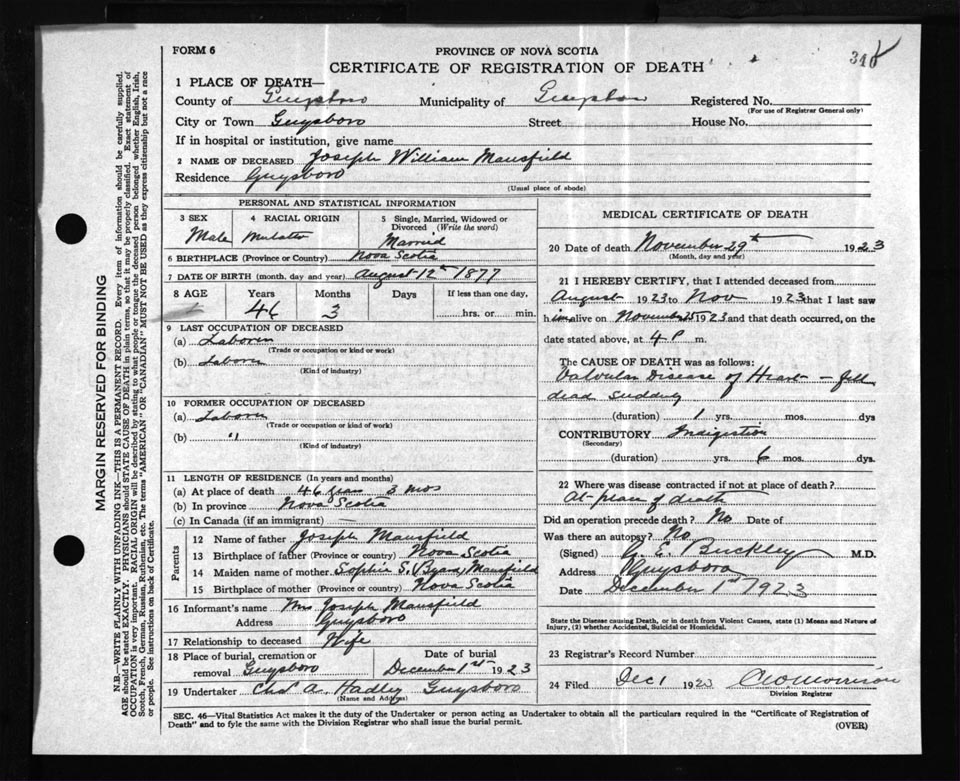 FORM 6
PROVINCE OF NOVA SCOTIA
CERTIFICATE OF REGISTRATION OF DEATH
MARGIN RESERVED FOR BINDING
N.B.—WRITE PLAINLY WITH UNFADING INK—THIS IS A PERMANENT RECORD. Every item of information should be carefully supplied.
AGE should be stated EXACTLY. PHYSICIANS should STATE CAUSE OF DEATH in plain terms, so that it may be properly classified. Exact statement of
OCCUPATION is very important. RACIAL ORIGIN will be described by stating to what people or tongue the deceased person belonged whether English, Irish,
Scotch, French, German, Russian, Ruthenian, etc. The terms "AMERICAN" OR "CANADIAN" MUST NOT BE USED as they express citizenship but not a race
or people. See instructions on back of Certificate.
1 PLACE OF DEATH—
County of Guysboro Municipality of Guysboro Registered No.
(For use of Registrar General only)
City or Town Guysboro Street House No.
If in hospital or institution, give name
2 NAME OF DECEASED Joseph William Mansfield
Residence Guysboro
(Usual place of abode)
PERSONAL AND STATISTICAL INFORMATION
3 SEX Male
4 RACIAL ORIGIN Mulatto
5 Single, Married, Widowed or Divorced (Write the word) Married
6 BIRTHPLACE (Province or Country) Nova Scotia
7 DATE OF BIRTH (month, day and year) August 12th 1877
8 AGE Years 46 Months 3 Days If less than one day, hrs. or min.
9 LAST OCCUPATION OF DECEASED
(a) Laborer
(Trade or occupation or kind or work)
(b) Laborer
(Kind of industry)
10 FORMER OCCUPATION OF DECEASED
(a) Laborer
(Trade or occupation or kind of work)
(b) "
(Kind of industry)
11 LENGTH OF RESIDENCE (In years and months)
(a) At place of death 46 years 3 mos
(b) In province Nova Scotia
(c) In Canada (if an immigrant) —
Parents
12 Name of father Joseph Mansfield
13 Birthplace of father (Province or country) Nova Scotia
14 Maiden name of mother Sophia S. Mansfield
15 Birthplace of mother (Province or country) Nova Scotia
16 Informant's name Mrs Joseph Mansfield
Address Guysboro
17 Relationship to deceased Wife
18 Place of burial, cremation or removal Guysboro
Date of burial December 1st 1923
19 Undertaker Chas A. Hadley Guysboro
(Name and Address)
MEDICAL CERTIFICATE OF DEATH
20 Date of death November 29th 1923
(Month, day and year)
21 I HEREBY CERTIFY, that I attended deceased from
August 1923 to Nov 1923 that I last saw
him alive on November 25 1923 and that death occurred, on the
date stated above, at 4 P m.
The CAUSE OF DEATH was as follows:
Valvular Disease of Heart – fell
dead
(duration) 1 yrs. mos. dys
CONTRIBUTORY Indigestion
(Secondary)
(duration) yrs. 6 mos. dys.
22 Where was disease contracted if not at place of death?
At place of death
Did an operation precede death? No Date of
Was there an autopsy? No
(Signed) G. E. Buckley M.D.
Address Guysboro
Date December 1st 1923
State the Disease causing Death, or in death from Violent Causes, state (1) Means and Nature of
Injury, (2) whether Accidental, Suicidal or Homicidal.
23 Registrar's Record Number
24 Filed Dec 1 1923
Division Registrar
SEC. 46—Vital Statistics Act makes it the duty of the Undertaker or person acting as Undertaker to obtain all the particulars required in the "Certificate of Registration of
Death" and to fyle the same with the Division Registrar who shall issue the burial permit.
(OVER)